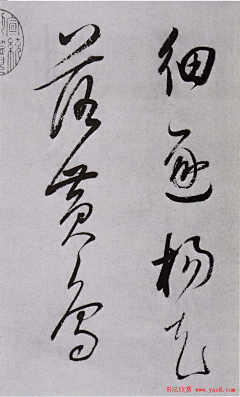 細逐楊花
落黃鳥
书法欣赏 www.yac8.com